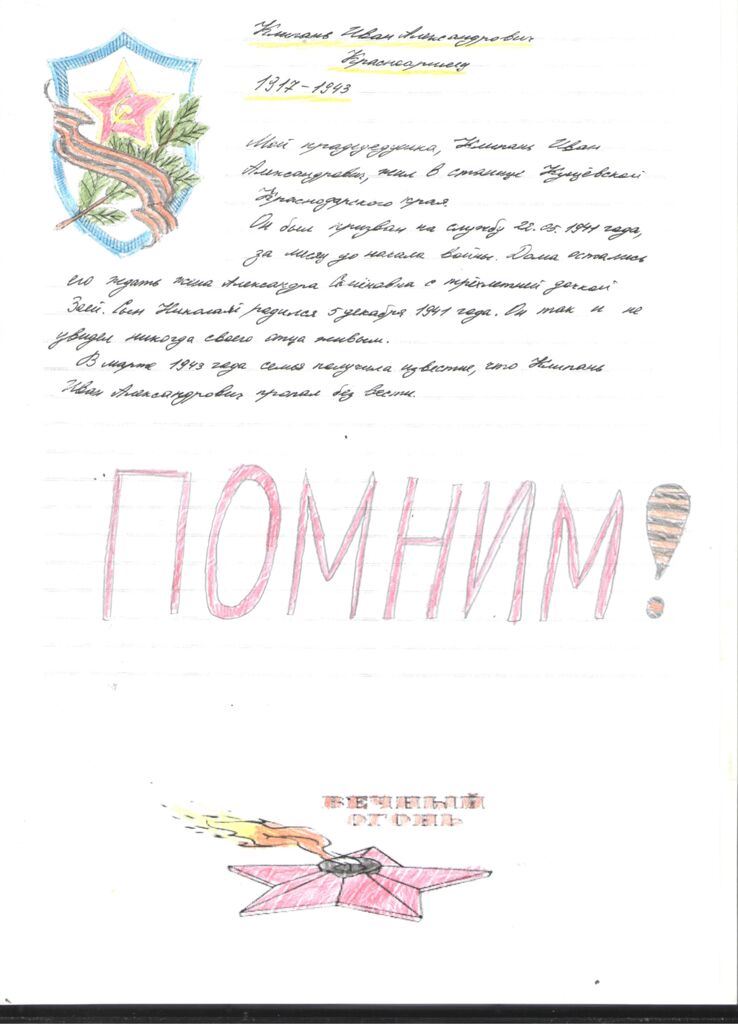 Клипань Иван Александрович
Красноармеец
1917-1943
Мой прадедушка, Клипань Иван
Александрович, жил в станице Кущёвской
Краснодарского края.
Он был призван на службу 22.05.1941 года,
за месяц до начала войны. Дома остались
его ждать жена Александра Семёновна с трёхлетней дочкой
Зоей. Сын Николай родился 5 декабря 1941 года. Он так и не
увидел никогда своего отца живым.
В марте 1943 года семья получила известие, что Клипань
Иван Александрович пропал без вести.
ПОМНИМ!
ВЕЧНЫЙ
ОГОНЬ